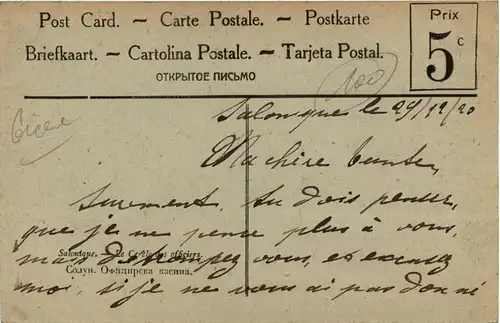 Post Card. — Carte Postale. — Postkarte
Briefkaart. — Cartolina Postale. — Tarjeta Postal.
ОТКРЫТОЕ ПИСЬМО
Prix
5 c
100
Salonique le 24/12/20
Ma chère tante,
Surement, tu dois penser,
que je ne pense plus à vous,
Salonique. — Le Cercle des officiers.
mais détrompez vous, et excusez
Солун. Официрска касина.
moi, si je ne vous ai pas donné